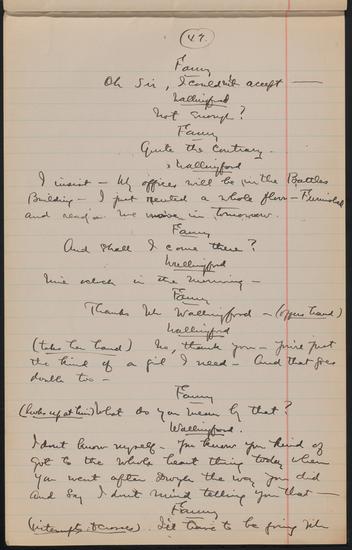 47.
Fanny
Oh Sir, I couldn't accept —
Wallingford
Not enough?
Fanny
Quite the contrary.
Wallingford
I insist — My offices will be in the Battles
Building — I just rented a whole floor — Furnished
and ready. We move in tomorrow.
Fanny
And shall I come there?
Wallingford
Nine oclock in the morning —
Fanny
Thanks Mr Wallingford — (offers hand)
Wallingford
(takes her hand) No, thank you — You're just
the kind of a girl I need — And that goes
double too —
Fanny
(looks up at him) What do you mean by that?
Wallingford.
I dont know myself — You know you kind of
got to the whole heart thing today when
you went after the way you did
And say I dont mind telling you that —
Fanny
I'll have to be going Mr